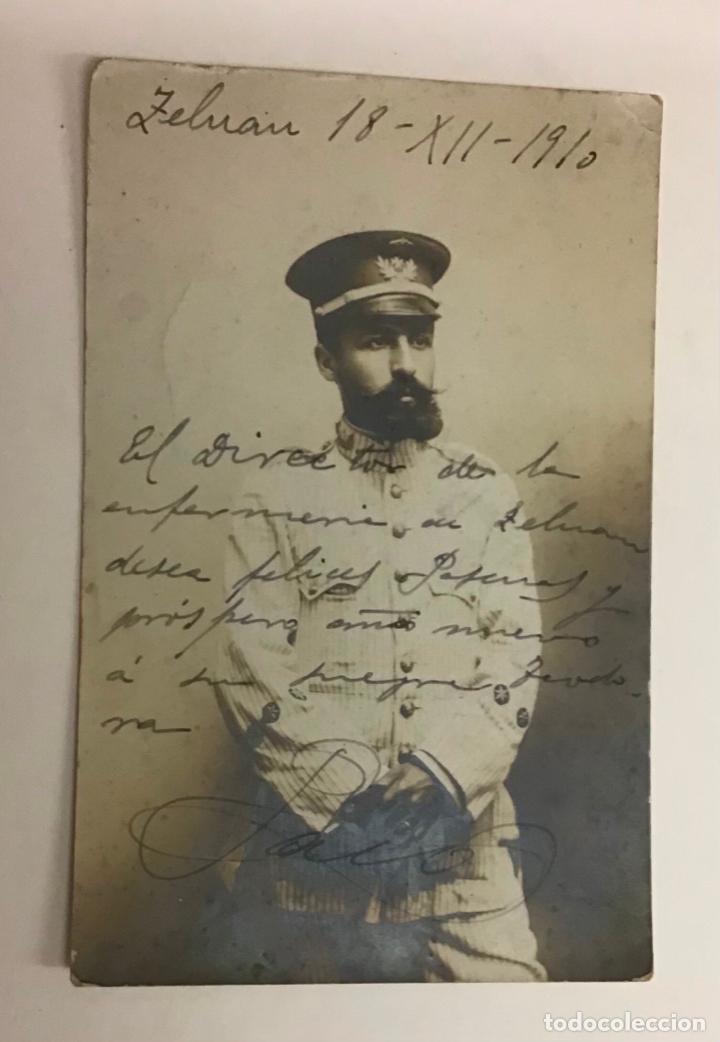 Zeluan 18-XII-1910
El Director de la
enfermeria de Zeluan
desea felices Pascuas y
próspero año nuevo
á su suegra Teodo-
ra
Paco
todocoleccion